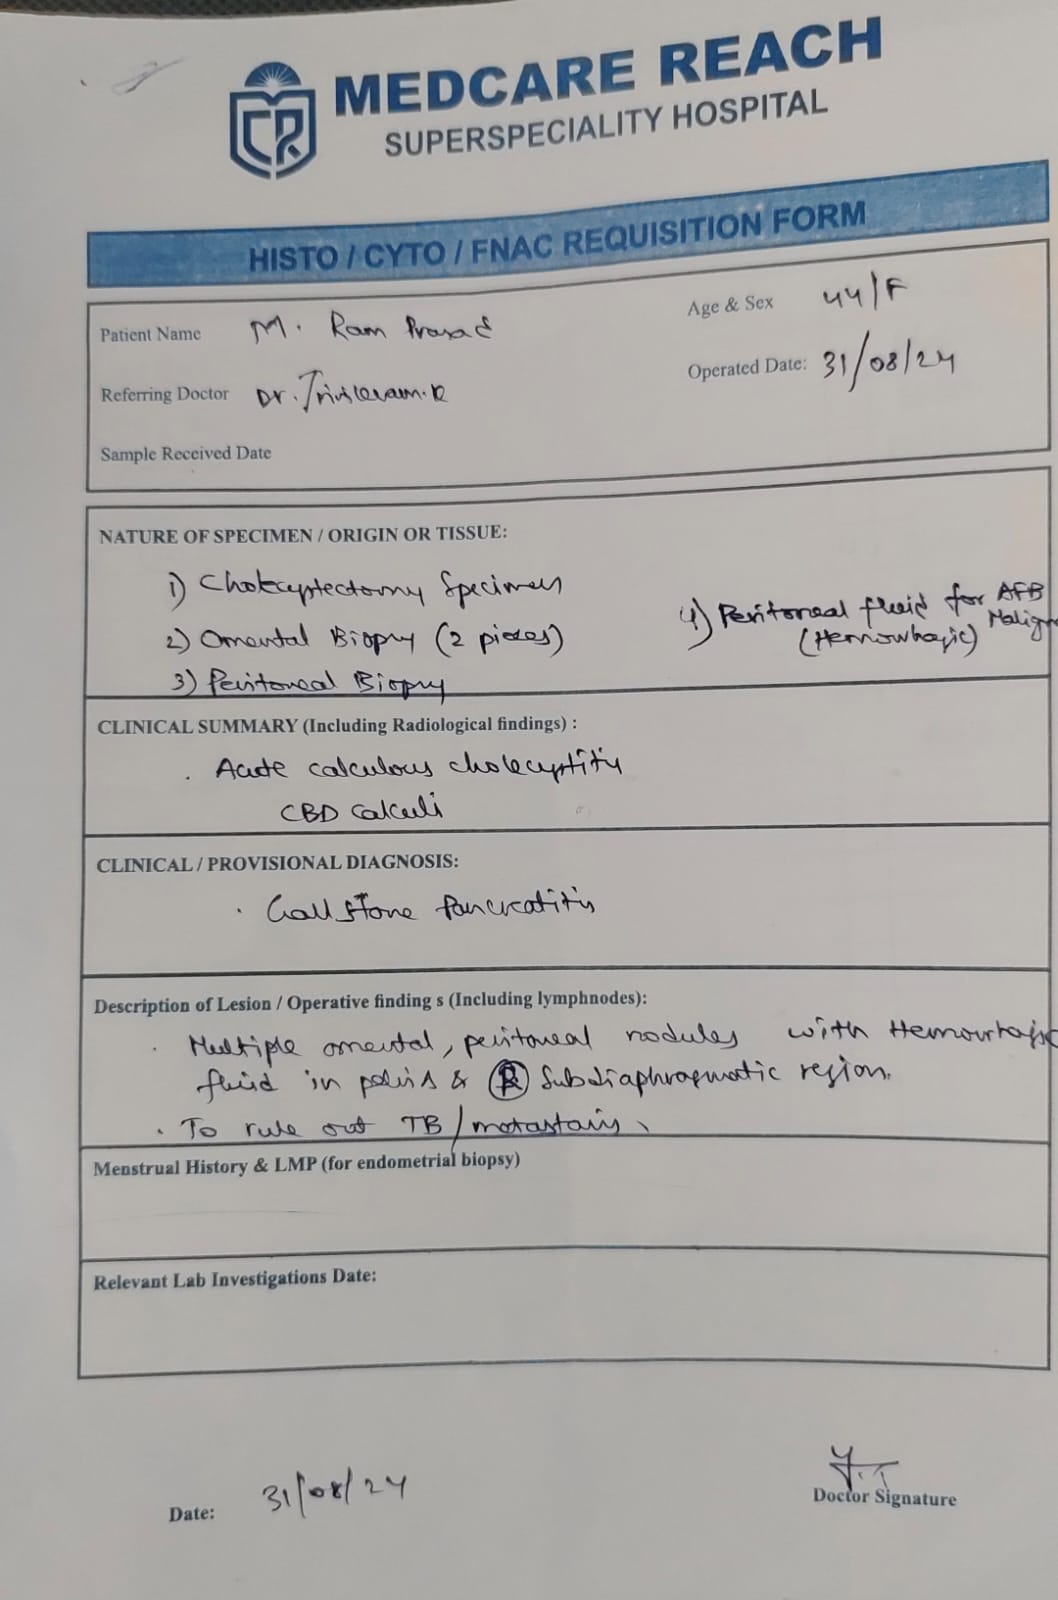 MEDCARE REACH
SUPERSPECIALITY HOSPITAL
HISTO / CYTO / FNAC REQUISITION FORM
Patient Name M. Ram Prasad
Age & Sex 44/F
Referring Doctor Dr.
Operated Date: 31/08/24
Sample Received Date
NATURE OF SPECIMEN / ORIGIN OR TISSUE:
1) Cholecyptectomy Specimen
2) Omental Biopsy (2 pieces)
3) Peritoneal Biopsy
4) Peritoneal fluid for AFB
Malign
(Hemorrhagic)
CLINICAL SUMMARY (Including Radiological findings) :
. Acute calculous cholecystitis
CBD calculi
CLINICAL / PROVISIONAL DIAGNOSIS:
. Gall stone Pancreatitis
Description of Lesion / Operative finding s (Including lymphnodes):
. Multiple omental, peritoneal nodules with Hemorrhagic
fluid in pelvis & R Subdiaphragmatic region.
. To rule out TB / metastasis
Menstrual History & LMP (for endometrial biopsy)
Relevant Lab Investigations Date:
Date: 31/08/24
Doctor Signature